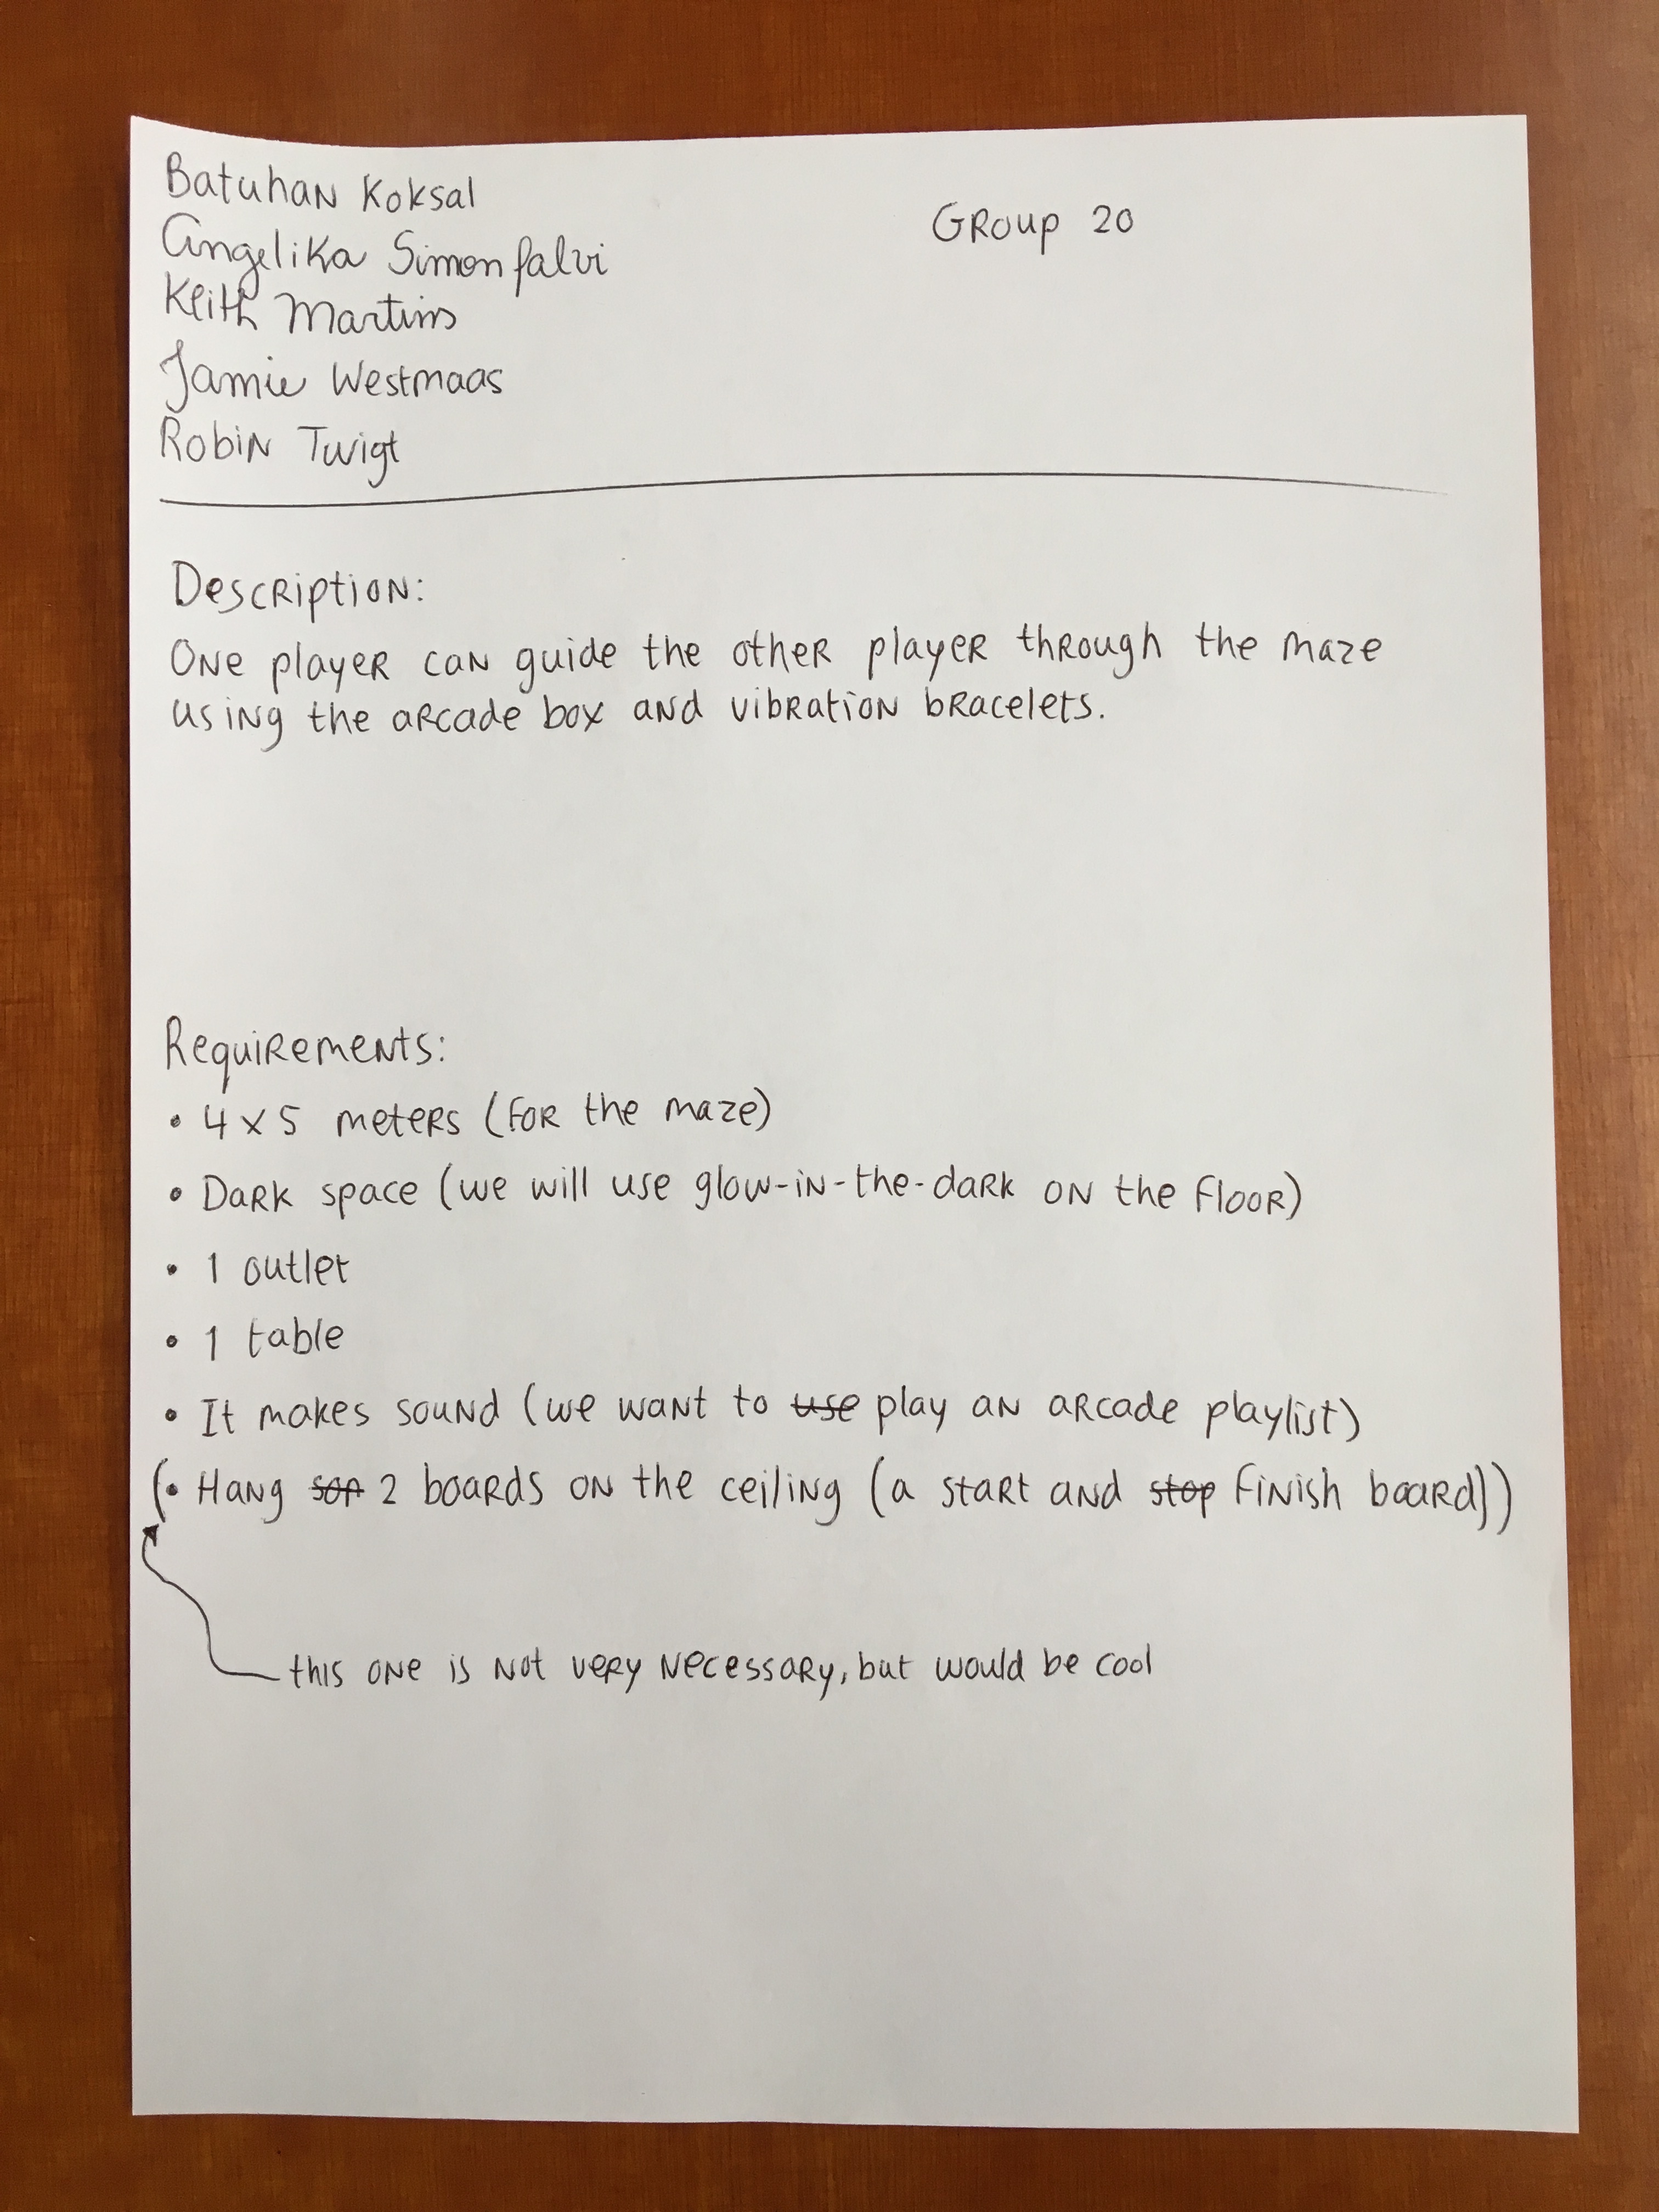 Batuhan Koksal
Group 20
Angelika Simonfalvi
Keith Martins
Jamie Westmaas
Robin Twigt
Description:
One player can guide the other player through the maze
using the arcade box and vibration bracelets.
Requirements:
• 4 x 5 meters (for the maze)
• Dark space (we will use glow-in-the-dark on the floor)
• 1 outlet
• 1 table
• It makes sound (we want to use play an arcade playlist)
(• Hang 2 boards on the ceiling (a start and stop finish board))
this one is not very necessary, but would be cool